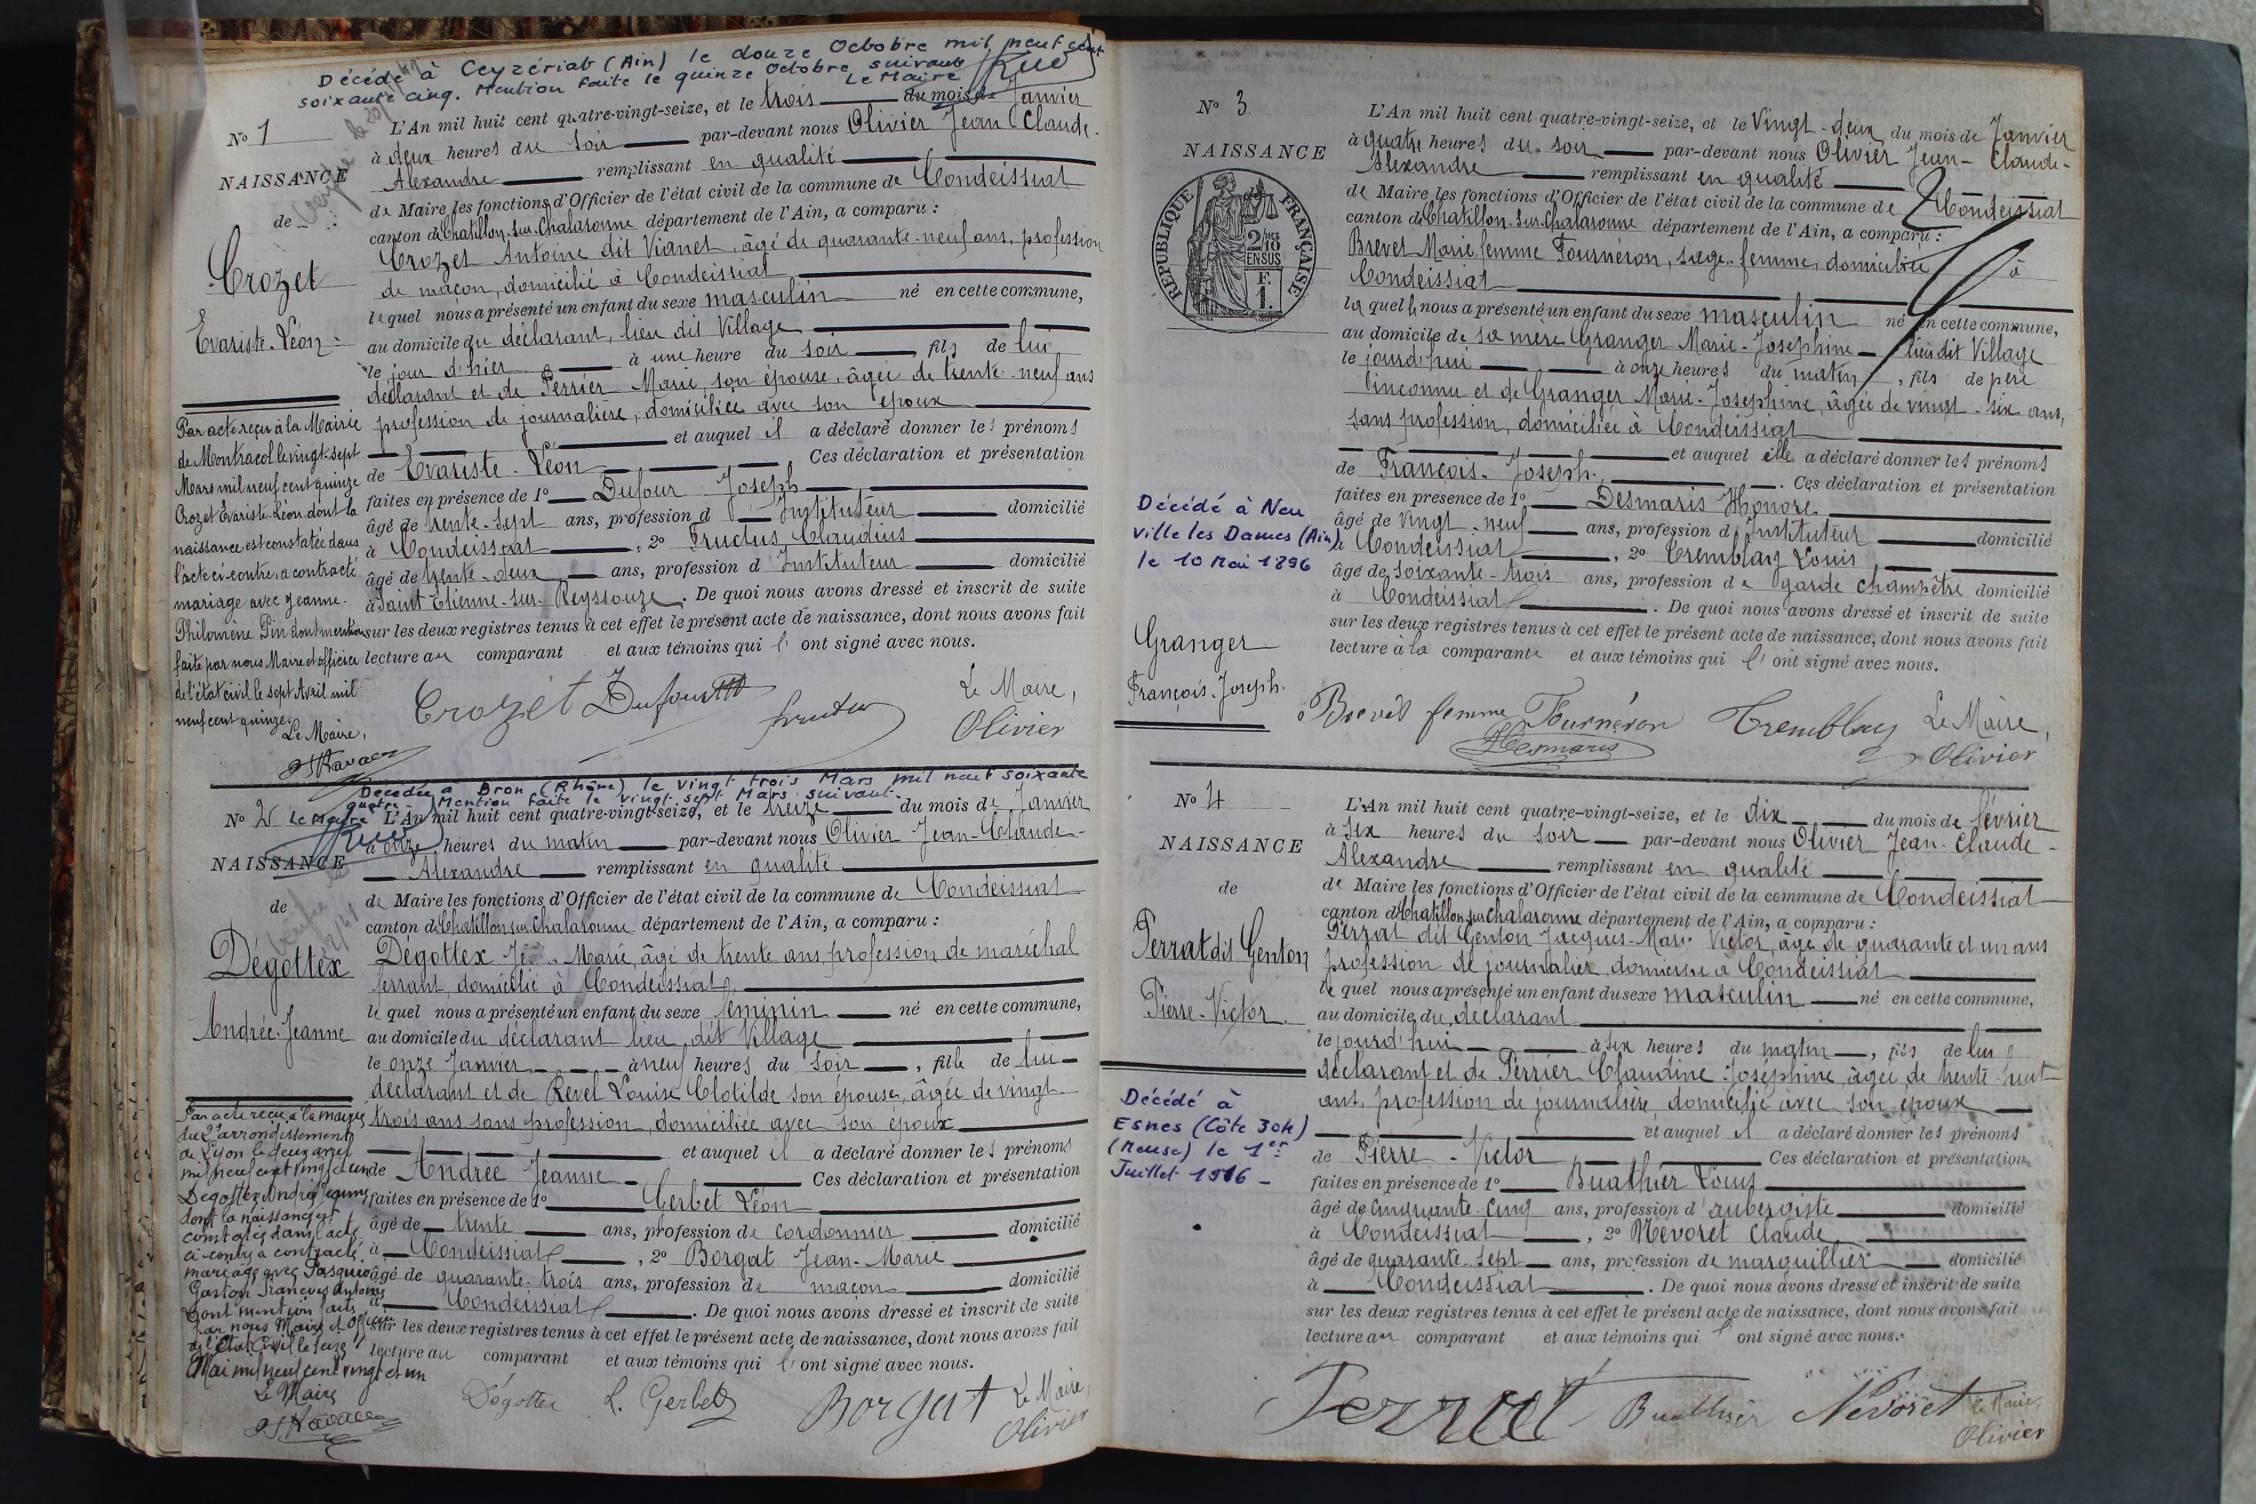 Décédé à Ceyzériat (Ain) le douze Octobre mil neuf cent
soixante cinq. Mention faite le quinze Octobre suivant
Le Maire
No 1
NAISSANCE
de
Crozet
Evariste-Léon
L'An mil huit cent quatre-vingt-seize, et le trois du mois de Janvier
à deux heures du soir par-devant nous Olivier Jean Claude-
Alexandre remplissant en qualité
de Maire les fonctions d'Officier de l'état civil de la commune de Condeissiat
canton de Chatillon-sur-Chalaronne département de l'Ain, a comparu :
Crozet Antoine dit Vianet, âgé de quarante-neuf ans, profession
de maçon, domicilié à Condeissiat
lequel nous a présenté un enfant du sexe masculin né en cette commune,
au domicile du déclarant, lieu dit Village
le jour d'hier à une heure du soir, fils de lui
déclarant et de Perrier Marie, son épouse, âgée de trente-neuf ans
profession de journalière, domiciliée avec son époux
et auquel il a déclaré donner les prénoms
de Evariste-Léon Ces déclaration et présentation
faites en présence de 1o Dufour Joseph
âgé de trente-sept ans, profession d Instituteur domicilié
à Condeissiat, 2o Fructus Claudius
âgé de trente-deux ans, profession d Instituteur domicilié
à Saint Etienne-sur-Reyssouze. De quoi nous avons dressé et inscrit de suite
sur les deux registres tenus à cet effet le présent acte de naissance, dont nous avons fait
lecture au comparant et aux témoins qui l'ont signé avec nous.
Par acte reçu à la Mairie
de Montracol le vingt-sept
Mars mil neuf cent quinze
Crozet Evariste-Léon dont la
naissance est constatée dans
l'acte ci-contre, a contracté
mariage avec Jeanne-
Philomène Pin dont mention
faite par nous Maire et officier
de l'état civil le sept Avril mil
neuf cent quinze.
Le Maire,
Crozet Dufour Fructus
Le Maire,
Olivier
Décédée à Bron (Rhône) le vingt trois Mars mil neuf soixante
quatre. Mention faite le vingt-sept Mars suivant.
Le Maire
No 2
NAISSANCE
de
Dégottex
Andrée-Jeanne
L'An mil huit cent quatre-vingt-seize, et le treize du mois de Janvier
à onze heures du matin par-devant nous Olivier Jean-Claude-
Alexandre remplissant en qualité
de Maire les fonctions d'Officier de l'état civil de la commune de Condeissiat
canton de Chatillon-sur-Chalaronne département de l'Ain, a comparu :
Dégottex Marie, âgé de trente ans, profession de maréchal
ferrant, domicilié à Condeissiat,
lequel nous a présenté un enfant du sexe féminin né en cette commune,
au domicile du déclarant lieu dit Village
le onze Janvier à neuf heures du soir, fille de lui
déclarant et de Revel Louise Clotilde son épouse, âgée de vingt
trois ans sans profession, domiciliée avec son époux
et auquel il a déclaré donner les prénoms
de Andrée Jeanne Ces déclaration et présentation
faites en présence de 1o Gerbet Léon
âgé de trente ans, profession de cordonnier domicilié
à Condeissiat, 2o Borgat Jean-Marie
âgé de quarante-trois ans, profession de maçon domicilié
à Condeissiat. De quoi nous avons dressé et inscrit de suite
sur les deux registres tenus à cet effet le présent acte de naissance, dont nous avons fait
lecture au comparant et aux témoins qui l'ont signé avec nous.
Par acte reçu à la mairie
du 2e arrondissement
de Lyon le deux avril
mil neuf cent vingt et un
Degottex Andrée Jeanne
dont la naissance est
constatée dans l'acte
ci-contre a contracté
mariage avec Pasquio
Gaston François Antoine
Dont mention faite
par nous Maire et Officier
de l'Etat Civil le seize
Mai mil neuf cent vingt et un
Le Maire
Dégottex L. Gerbet Borgat
Le Maire,
Olivier
No 3
NAISSANCE
RÉPUBLIQUE FRANÇAISE
2/10
EN SUS
F.
1.
L'An mil huit cent quatre-vingt-seize, et le Vingt-deux du mois de Janvier
à quatre heures du soir par-devant nous Olivier Jean-Claude-
Alexandre remplissant en qualité
de Maire les fonctions d'Officier de l'état civil de la commune de Condeissiat
canton de Chatillon-sur-Chalaronne département de l'Ain, a comparu :
Brevet Marie femme Fournéron, sage-femme, domiciliée à
Condeissiat
laquelle nous a présenté un enfant du sexe masculin né en cette commune,
au domicile de sa mère Granger Marie-Josephine lieu dit Village
le jourd'hui à onze heures du matin, fils de père
inconnu et de Granger Marie-Josephine, âgée de vingt-six ans,
sans profession, domiciliée à Condeissiat
et auquel elle a déclaré donner les prénoms
de François-Joseph. Ces déclaration et présentation
faites en présence de 1o Desmaris Honoré
âgé de vingt-neuf ans, profession d'Instituteur domicilié
à Condeissiat, 2o Tremblay Louis
âgé de soixante-trois ans, profession de garde champêtre domicilié
à Condeissiat. De quoi nous avons dressé et inscrit de suite
sur les deux registres tenus à cet effet le présent acte de naissance, dont nous avons fait
lecture à la comparante et aux témoins qui l'ont signé avec nous.
Décédé à Neu
ville les Dames (Ain)
le 10 Mai 1896
Granger
François-Joseph.
Brevet femme Fournéron Tremblay
Desmaris
Le Maire,
Olivier
No 4
NAISSANCE
de
Perrat dit Genton
Pierre-Victor
L'An mil huit cent quatre-vingt-seize, et le dix du mois de février
à six heures du soir par-devant nous Olivier Jean-Claude-
Alexandre remplissant en qualité
de Maire les fonctions d'Officier de l'état civil de la commune de Condeissiat
canton de Chatillon-sur-Chalaronne département de l'Ain, a comparu :
Perrat dit Genton Jacques-Marie Victor, âgé de quarante et un ans
profession de journalier, domicilié à Condeissiat
lequel nous a présenté un enfant du sexe masculin né en cette commune,
au domicile du déclarant
le jourd'hui à six heures du matin, fils de lui
déclarant et de Perrier Claudine-Joséphine, âgée de trente-huit
ans, profession de journalière, domiciliée avec son époux
et auquel il a déclaré donner les prénoms
de Pierre-Victor Ces déclaration et présentation
faites en présence de 1o Buathier Louis
âgé de cinquante-cinq ans, profession d'aubergiste domicilié
à Condeissiat, 2o Névoret Claude
âgé de quarante-sept ans, profession de marguillier domicilié
à Condeissiat. De quoi nous avons dressé et inscrit de suite
sur les deux registres tenus à cet effet le présent acte de naissance, dont nous avons fait
lecture au comparant et aux témoins qui l'ont signé avec nous.
Décédé à
Esnes (Côte 304)
(Meuse) le 1er
Juillet 1916
Perrat Buathier Névoret
Le Maire,
Olivier